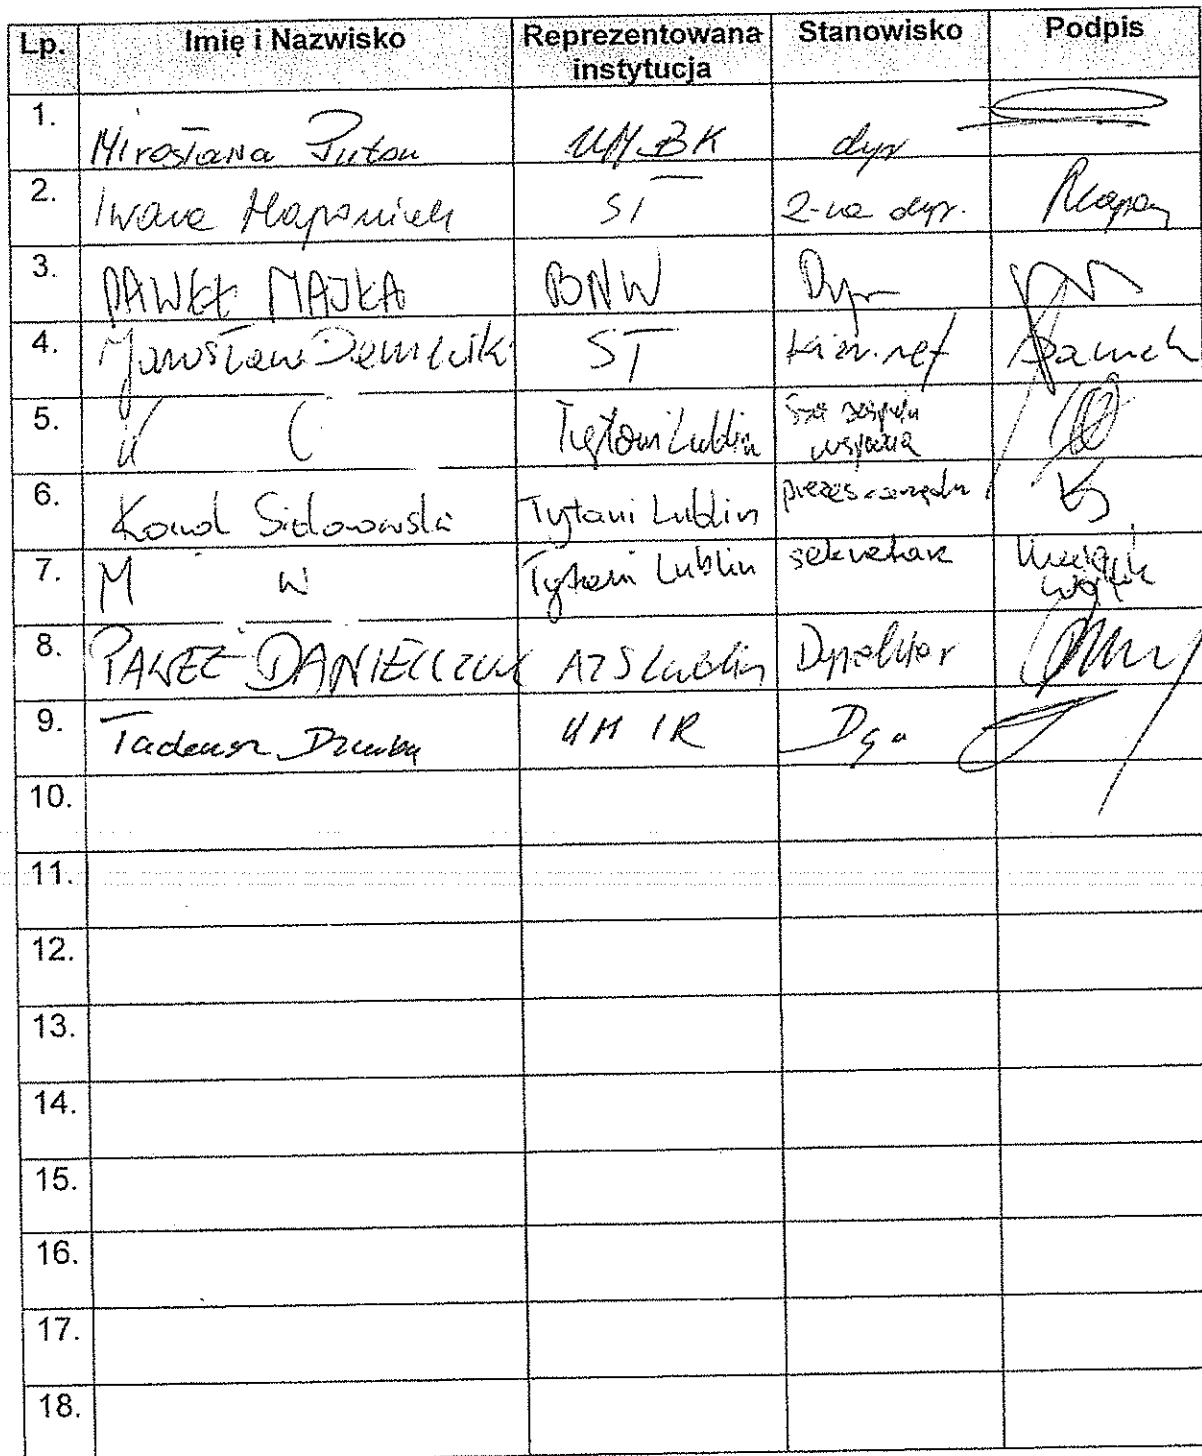 Lp. Imię i Nazwisko Reprezentowana instytucja Stanowisko Podpis
1. Mirosława Puton UM BK dyr
2. Iwona Haponiuk ST z-ca dyr.
3. PAWEŁ MAJKA BNW Dyr
4. Jarosław ST kier. ref
5. Tytani Lublin
6. Karol Tytani Lublin prezes zarządu
7. M W Tytani Lublin sekretarz
8. PAWEŁ DANIELCZUK AZS Lublin Dyrektor
9. Tadeusz UM IR
10.
11.
12.
13.
14.
15.
16.
17.
18.